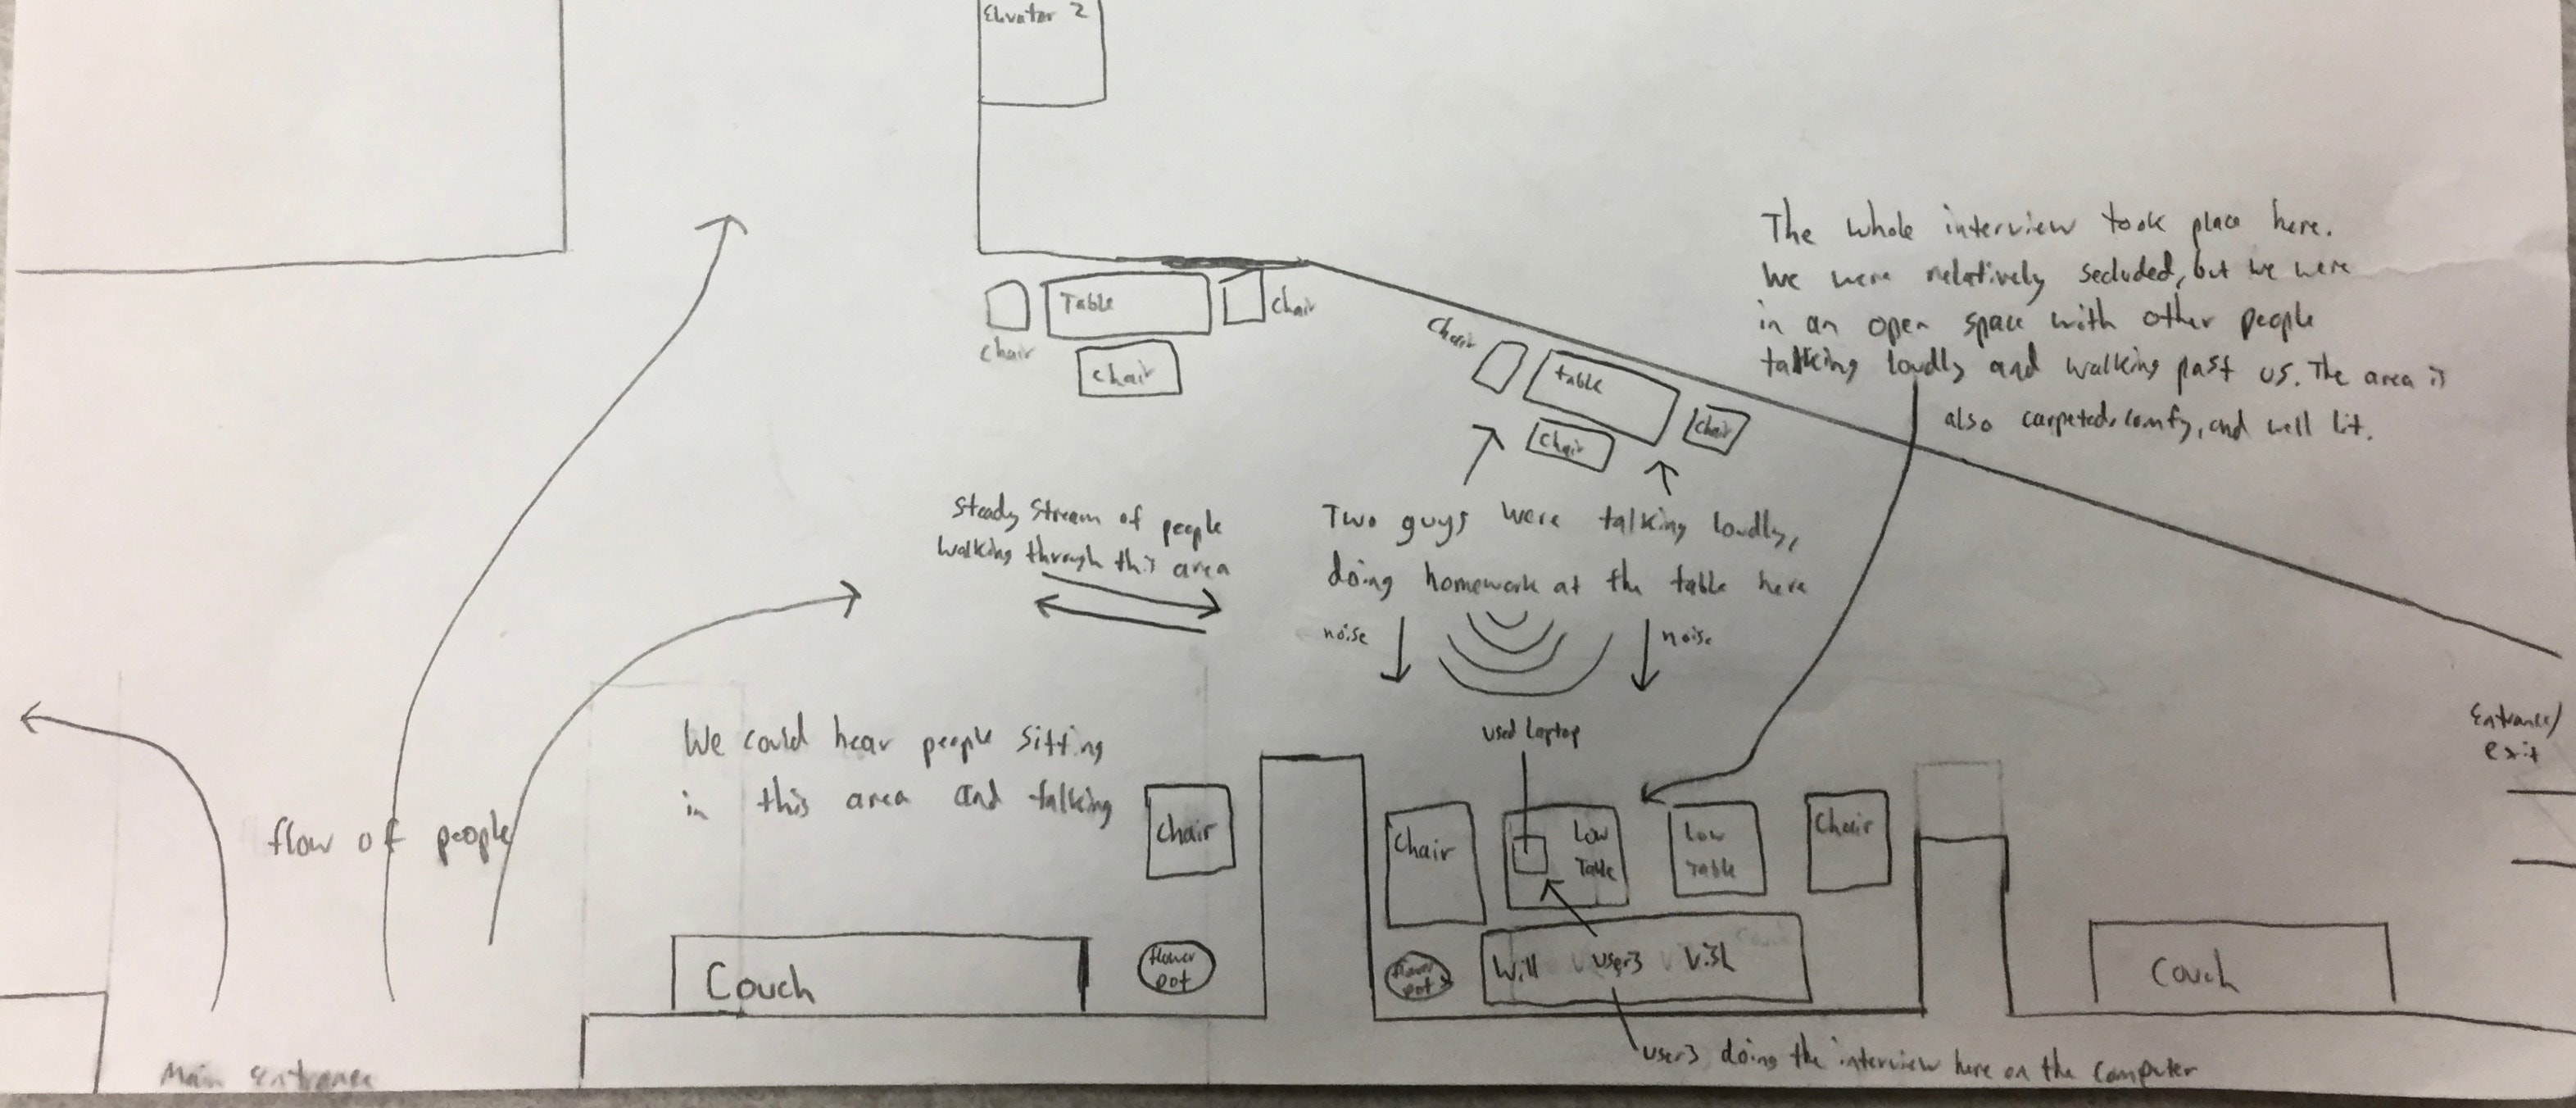 Elvator 2
The whole interview took place here.
We were relatively secluded, but we were
in an open space with other people
talking loudly and walking past us. The area is
also carpeted, comfy, and well lit.
Table
chair
chair
chair
chair
table
chair
chair
Steady Stream of people
walking through this area
Two guys were talking loudly,
doing homework at the table here
noise
noise
used laptop
Entrance/
exit
We could hear people sitting
in this area and talking
flow of people
Chair
Chair
Low
Table
Low
Table
Chair
Couch
flower
pot
flower
pot
Will user3 Vish
Couch
user3 doing the interview here on the computer
Main Entrance